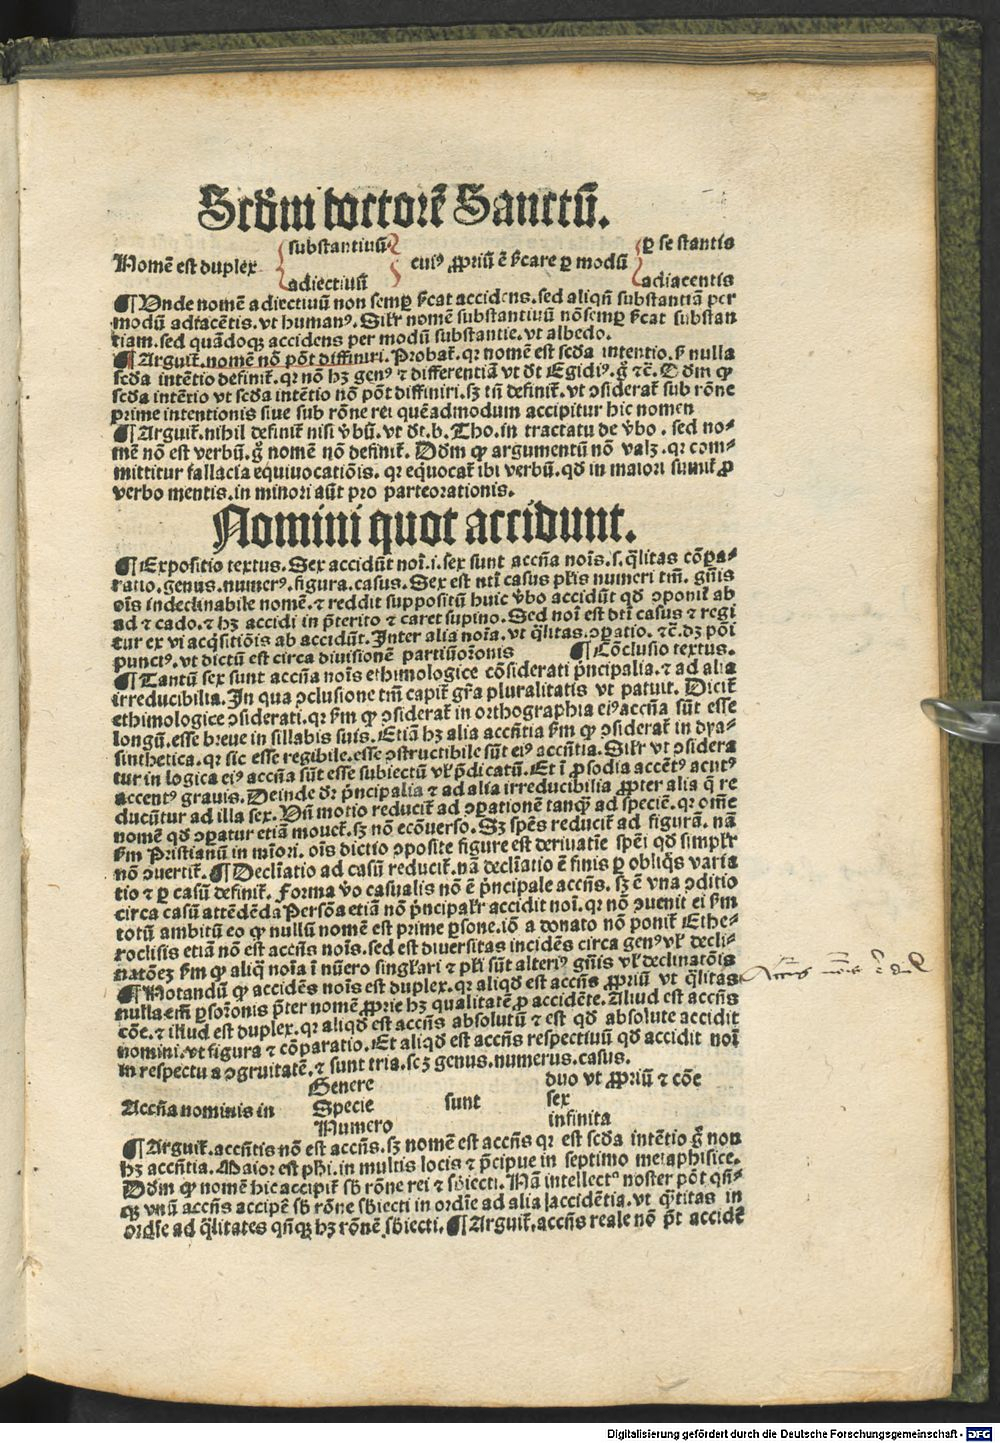 Scd̄m doctorē Sanctū.
substantiuū ꝑ se stantis
Nomē est duplex cuiꝰ ꝓpriū ē sīcare ꝑ modū
adiectiuū adiacentis
¶ Unde nomē adiectiuū non semꝑ sīcat accidens. sed aliqn̄ substantiā per
modū adiacētis. vt humanꝰ. Silr̄ nomē substantiuū nōsemꝑ sīcat substan
tiam. sed quādoqꝫ accidens per modū substantie. vt albedo.
¶ Arguit̄. nomē nō pōt diffiniri. Probat̄. qr nomē est scd̄a intentio. s̄ nulla
scd̄a intētio definit̄. qr nō hꝫ genꝰ ⁊ differentiā vt dt̄ Egidiꝰ. g̊ ⁊c̄. Dd̄m ꝙ
scd̄a intētio vt scd̄a intētio nō pōt diffiniri. sꝫ tn̄ definit̄. vt ꝯsiderat̄ sub rōne
prime intentionis siue sub rōne rei quēadmodum accipitur hic nomen
¶ Arguit̄. nihil definit̄ nisi v̄bū. vt dt̄. b. Tho. in tractatu de v̄bo. sed no⸗
mē nō est verbū. g̊ nomē nō definit̄. Dd̄m ꝙ argumentū nō valꝫ. qr com⸗
mittitur fallacia equiuocatiōis. qr eq̄uocat̄ ibi verbū. qd̄ in maiori sumit̄ ꝓ
verbo mentis. in minori aūt pro parteorationis.
Nomini quot accidunt.
¶ Expositio textus. Sex accidūt noī. i. sex sunt accn̄a noīs. s. q̄litas cōpa⸗
ratio. genus. numerꝰ. figura. casus. Sex est ntī casus pl̄is numeri tm̄. gn̄is
oīs indeclinabile nomē. ⁊ reddit suppositū huic v̄bo accidūt qd̄ ꝯponit̄ ab
ad ⁊ cado. ⁊ hꝫ accidi in p̄terito ⁊ caret supino. Sed noī est dtī casus ⁊ regi
tur ex vi acq̄sitiōis ab accidūt. Inter alia noīa. vt q̄litas. ꝯꝑatio. ⁊c̄. dꝫ pōi
punctꝰ. vt dictū est circa diuisionē partiū orōnis ¶ Cōclusio textus.
¶ Tantū sex sunt accn̄a noīs ethimologice cōsiderati p̄ncipalia. ⁊ ad alia
irreducibilia. In qua ꝯclusione tm̄ capit̄ gr̄a pluralitatis vt patuit. Dicit̄
ethimologice ꝯsiderati. qr s̄m ꝙ ꝯsiderat̄ in orthographia eiꝰ accn̄a sūt esse
longū. esse breue in sillabis suis. Etiā hꝫ alia accn̄tia s̄m ꝙ ꝯsiderat̄ in dya⸗
sinthetica. qr sic esse regibile. esse ꝯstructibile sūt eiꝰ accn̄tia. Silr̄ vt ꝯsidera
tur in logica eiꝰ accn̄a sūt esse subiectū vl̄ p̄dicatū. Et ī ꝓsodia accētꝰ acutꝰ
accentꝰ grauis. Deinde dr̄ p̄ncipalia ⁊ ad alia irreducibilia ꝓpter alia q̄ re
ducūtur ad illa sex. Vn̄ motio reducit̄ ad ꝯꝑationē tanqꝫ ad speciē. qr omē
nomē qd̄ ꝯꝑatur etiā mouet̄. sꝫ nō ecōuerso. Sꝫ spēs reducit̄ ad figurā. nā
s̄m Pristianū in mīori. oīs dictio ꝯposite figure est deriuatie spēi qd̄ simplr̄
nō ꝯuertit̄. ¶ Declīatio ad casū reducit̄. nā declīatio ē finis ꝑ obliq̄s varia
tio ⁊ ꝑ casū definit̄. Forma v̄o casualis nō ē p̄ncipale accn̄s. sꝫ ē vna ꝯditio
circa casū attēdēda Persōa etiā nō p̄ncipalr̄ accidit noī. qr nō ꝯuenit ei s̄m
totū ambitū eo ꝙ nullū nomē est prime ꝑsone. iō a donato nō ponit̄ Ethe⸗
roclisis etiā nō est accn̄s noīs. sed est diuersitas incidēs circa genꝰ vl̄ decli⸗
natōeꝫ s̄m ꝙ aliq̄ noīa ī nūero singl̄ari ⁊ pl̄i sūt alteriꝰ gn̄is vl̄ declinatōis
¶ Notandū ꝙ accidēs noīs est duplex. qr aliqd̄ est accn̄s ꝓpriū vt q̄litas
nulla em̄ ꝑs orōnis p̄ter nomē ꝓprie hꝫ qualitatē ꝓ accidēte. Aliud est accn̄s
cōe. ⁊ illud est duplex. qr aliqd̄ est accn̄s absolutū ⁊ est qd̄ absolute accidit
nomini. vt figura ⁊ cōparatio. Et aliqd̄ est accn̄s respectiuū qd̄ accidit noī
in respectu a ꝯgruitatē. ⁊ sunt tria. scꝫ genus. numerus. casus.
Genere duo vt ꝓpriū ⁊ cōe
Accn̄a nominis in Specie sunt sex
Numero infinita
¶ Arguit̄. accn̄tis nō est accn̄s. sꝫ nomē est accn̄s qr est scd̄a intētio g̊ non
hꝫ accn̄tia. Maior est phi. in multis locis ⁊ p̄cipue in septimo metaphisice.
Dd̄m ꝙ nomē hic accipit̄ sb̄ rōne rei ⁊ sb̄iecti. Nā intellectꝰ noster pōt qn̄⸗
qꝫ vnū accn̄s accipē sb̄ rōne sb̄iecti in ordīe ad alia accidētia. vt q̄titas in
ordīe ad q̄litates qn̄qꝫ hꝫ rōnē sb̄iecti. ¶ Arguit̄. accn̄s reale nō p̄t accidē
Digitalisierung gefördert durch die Deutsche Forschungsgemeinschaft - DFG